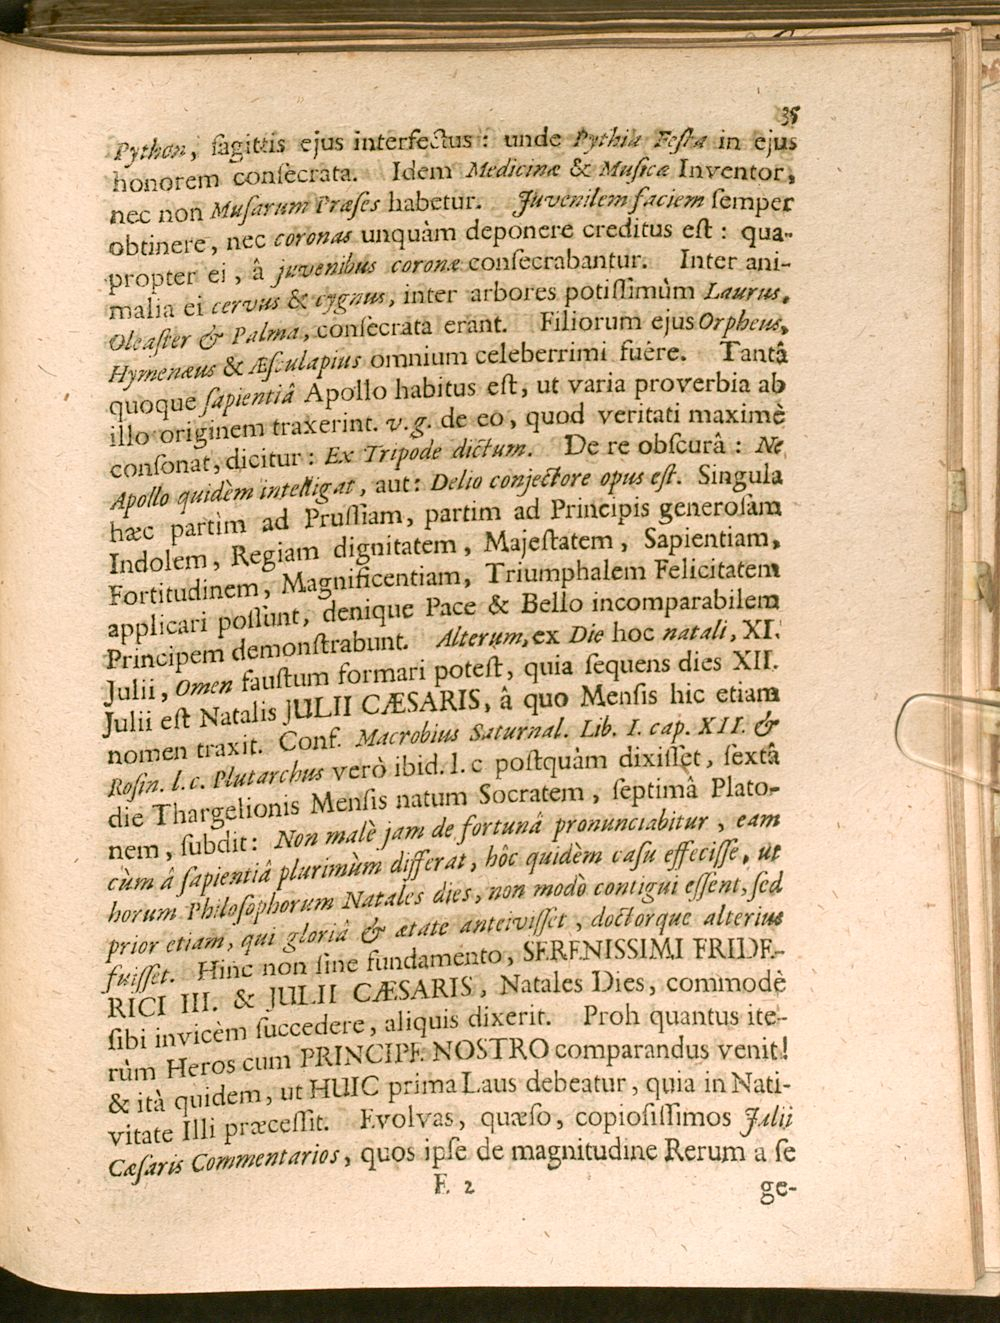 35
Python, ſagittis ejus interfectus : unde Pythia Feſta in ejus
honorem conſecrata. Idem Medicinæ & Muſicæ Inventor,
nec non Muſarum Præſes habetur. Juvenilem faciem ſemper
obtinere, nec coronas unquàm deponere creditus eſt : qua-
propter ei, â juvenibus coronæ conſecrabantur. Inter ani-
malia ei cervus & cygnus, inter arbores potiſſimùm Laurus,
Oleaſter & Palma, conſecrata erant. Filiorum ejus Orpheus,
Hymenæus & Æſculapius omnium celeberrimi fuêre. Tantâ
quoque ſapientiâ Apollo habitus eſt, ut varia proverbia ab
illo originem traxerint. v. g. de eo, quod veritati maximè
conſonat, dicitur : Ex Tripode dictum. De re obſcurâ : Ne
Apollo quidèm intelligat, aut : Delio conjectore opus eſt. Singula
hæc partìm ad Pruſſiam, partim ad Principis generoſam
Indolem, Regiam dignitatem, Majeſtatem, Sapientiam,
Fortitudinem, Magnificentiam, Triumphalem Felicitatem
applicari poſſunt, denique Pace & Bello incomparabilem
Principem demonſtrabunt. Alterum, ex Die hoc natali, XI.
Julii, Omen fauſtum formari poteſt, quia ſequens dies XII.
Julii eſt Natalis JULII CÆSARIS, â quo Menſis hic etiam
nomen traxit. Conf. Macrobius Saturnal. Lib. I. cap. XII. &
Roſin. l. c. Plutarchus verò ibid. l. c poſtquàm dixiſſet, ſextâ
die Thargelionis Menſis natum Socratem, ſeptimâ Plato-
nem, ſubdit : Non malè jam de fortunâ pronunciabitur, eam
cùm â ſapientiâ plurimùm differat, hôc quidèm caſu effeciſſe, ut
horum Philoſophorum Natales dies, non modò contigui eſſent, ſed
prior etiam, qui gloriâ & ætate anteiviſſet, doctorque alterius
fuiſſet. Hinc non ſine fundamento, SERENISSIMI FRIDE-
RICI III. & JULII CÆSARIS, Natales Dies, commodè
ſibi invicèm ſuccedere, aliquis dixerit. Proh quantus ite-
rùm Heros cum PRINCIPE NOSTRO comparandus venit!
& ità quidem, ut HUIC prima Laus debeatur, quia in Nati-
vitate Illi præceſſit. Evolvas, quæſo, copioſiſſimos Julii
Cæſaris Commentarios, quos ipſe de magnitudine Rerum a ſe
E 2
ge-